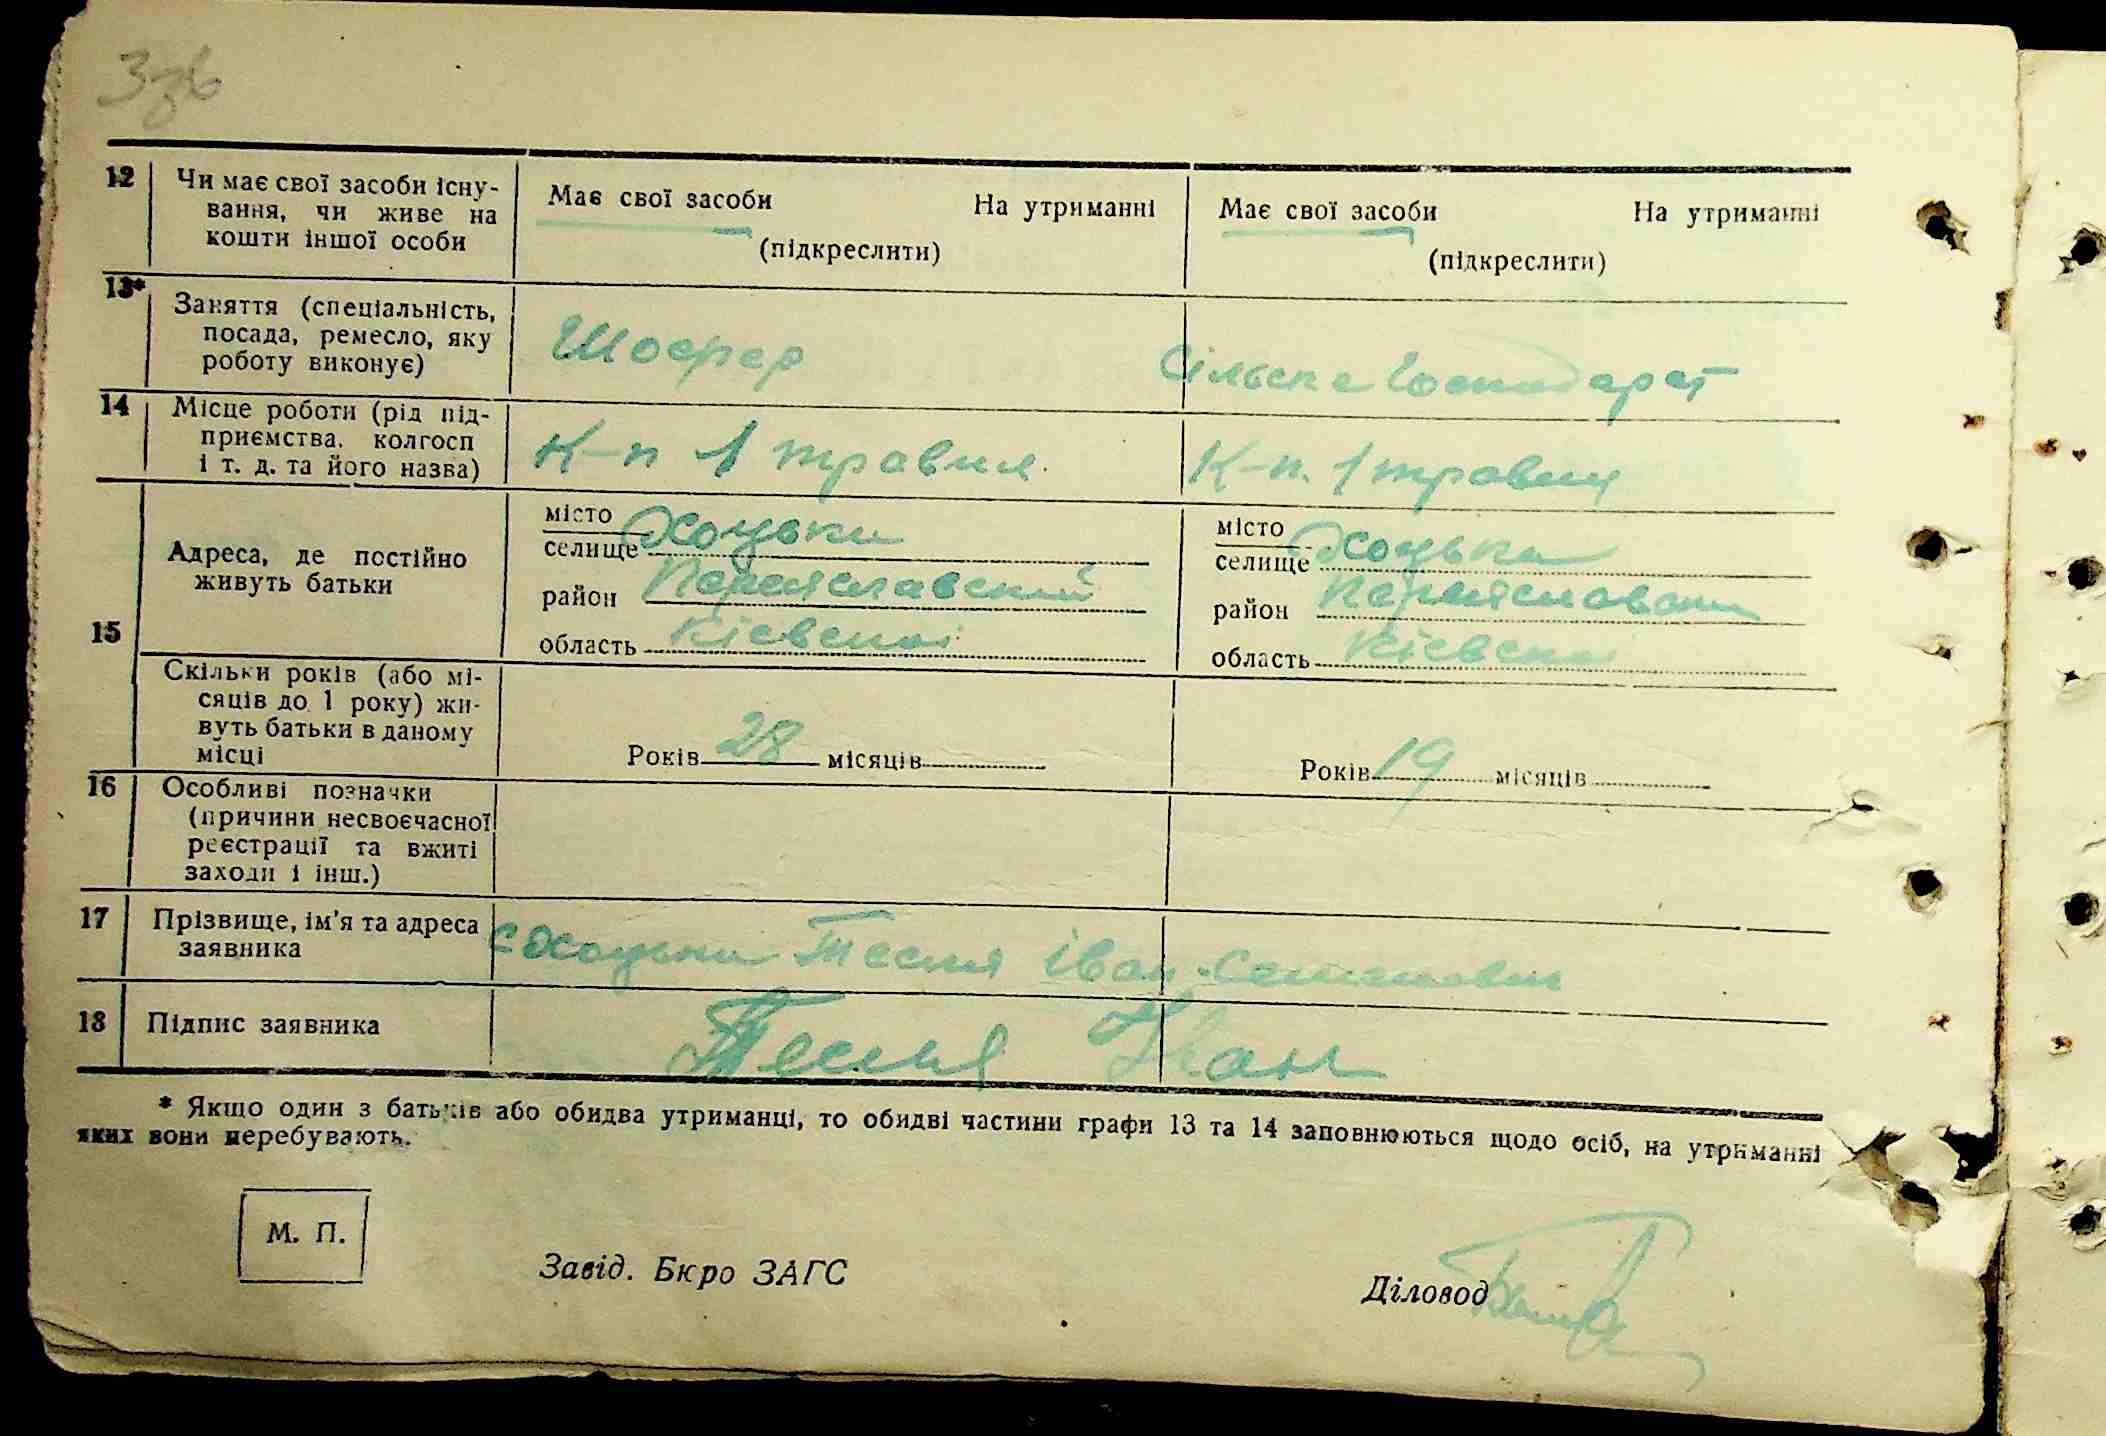 12 Чи має свої засоби існу-
вання, чи живе на
кошти іншої особи
Має свої засоби На утриманні
(підкреслити)
Має свої засоби На утриманні
(підкреслити)
13* Заняття (спеціальність,
посада, ремесло, яку
роботу виконує)
Шофер
Сільске Господарст
14 Місце роботи (рід під-
приємства, колгосп
і т. д. та його назва)
К-п 1 травня
К-п. 1 травня
15
Адреса, де постійно
живуть батьки
місто
селище Хоцьки
район Переяславский
область Кієвскоі
місто
селище Хоцьки
район
область
Скільки років (або мі-
сяців до 1 року) жи-
вуть батьки в даному
місці
Років 28 місяців
Років 19 місяців
16 Особливі позначки
(причини несвоєчасної
реєстрації та вжиті
заходи і інш.)
17 Прізвище, ім'я та адреса
заявника
с Хоцьки Тесля Іван
18 Підпис заявника
Тесля Иван
* Якщо один з батьків або обидва утриманці, то обидві частини графи 13 та 14 заповнюються щодо осіб, на утриманні
яких вони перебувають.
М. П.
Завід. Бюро ЗАГС
Діловод